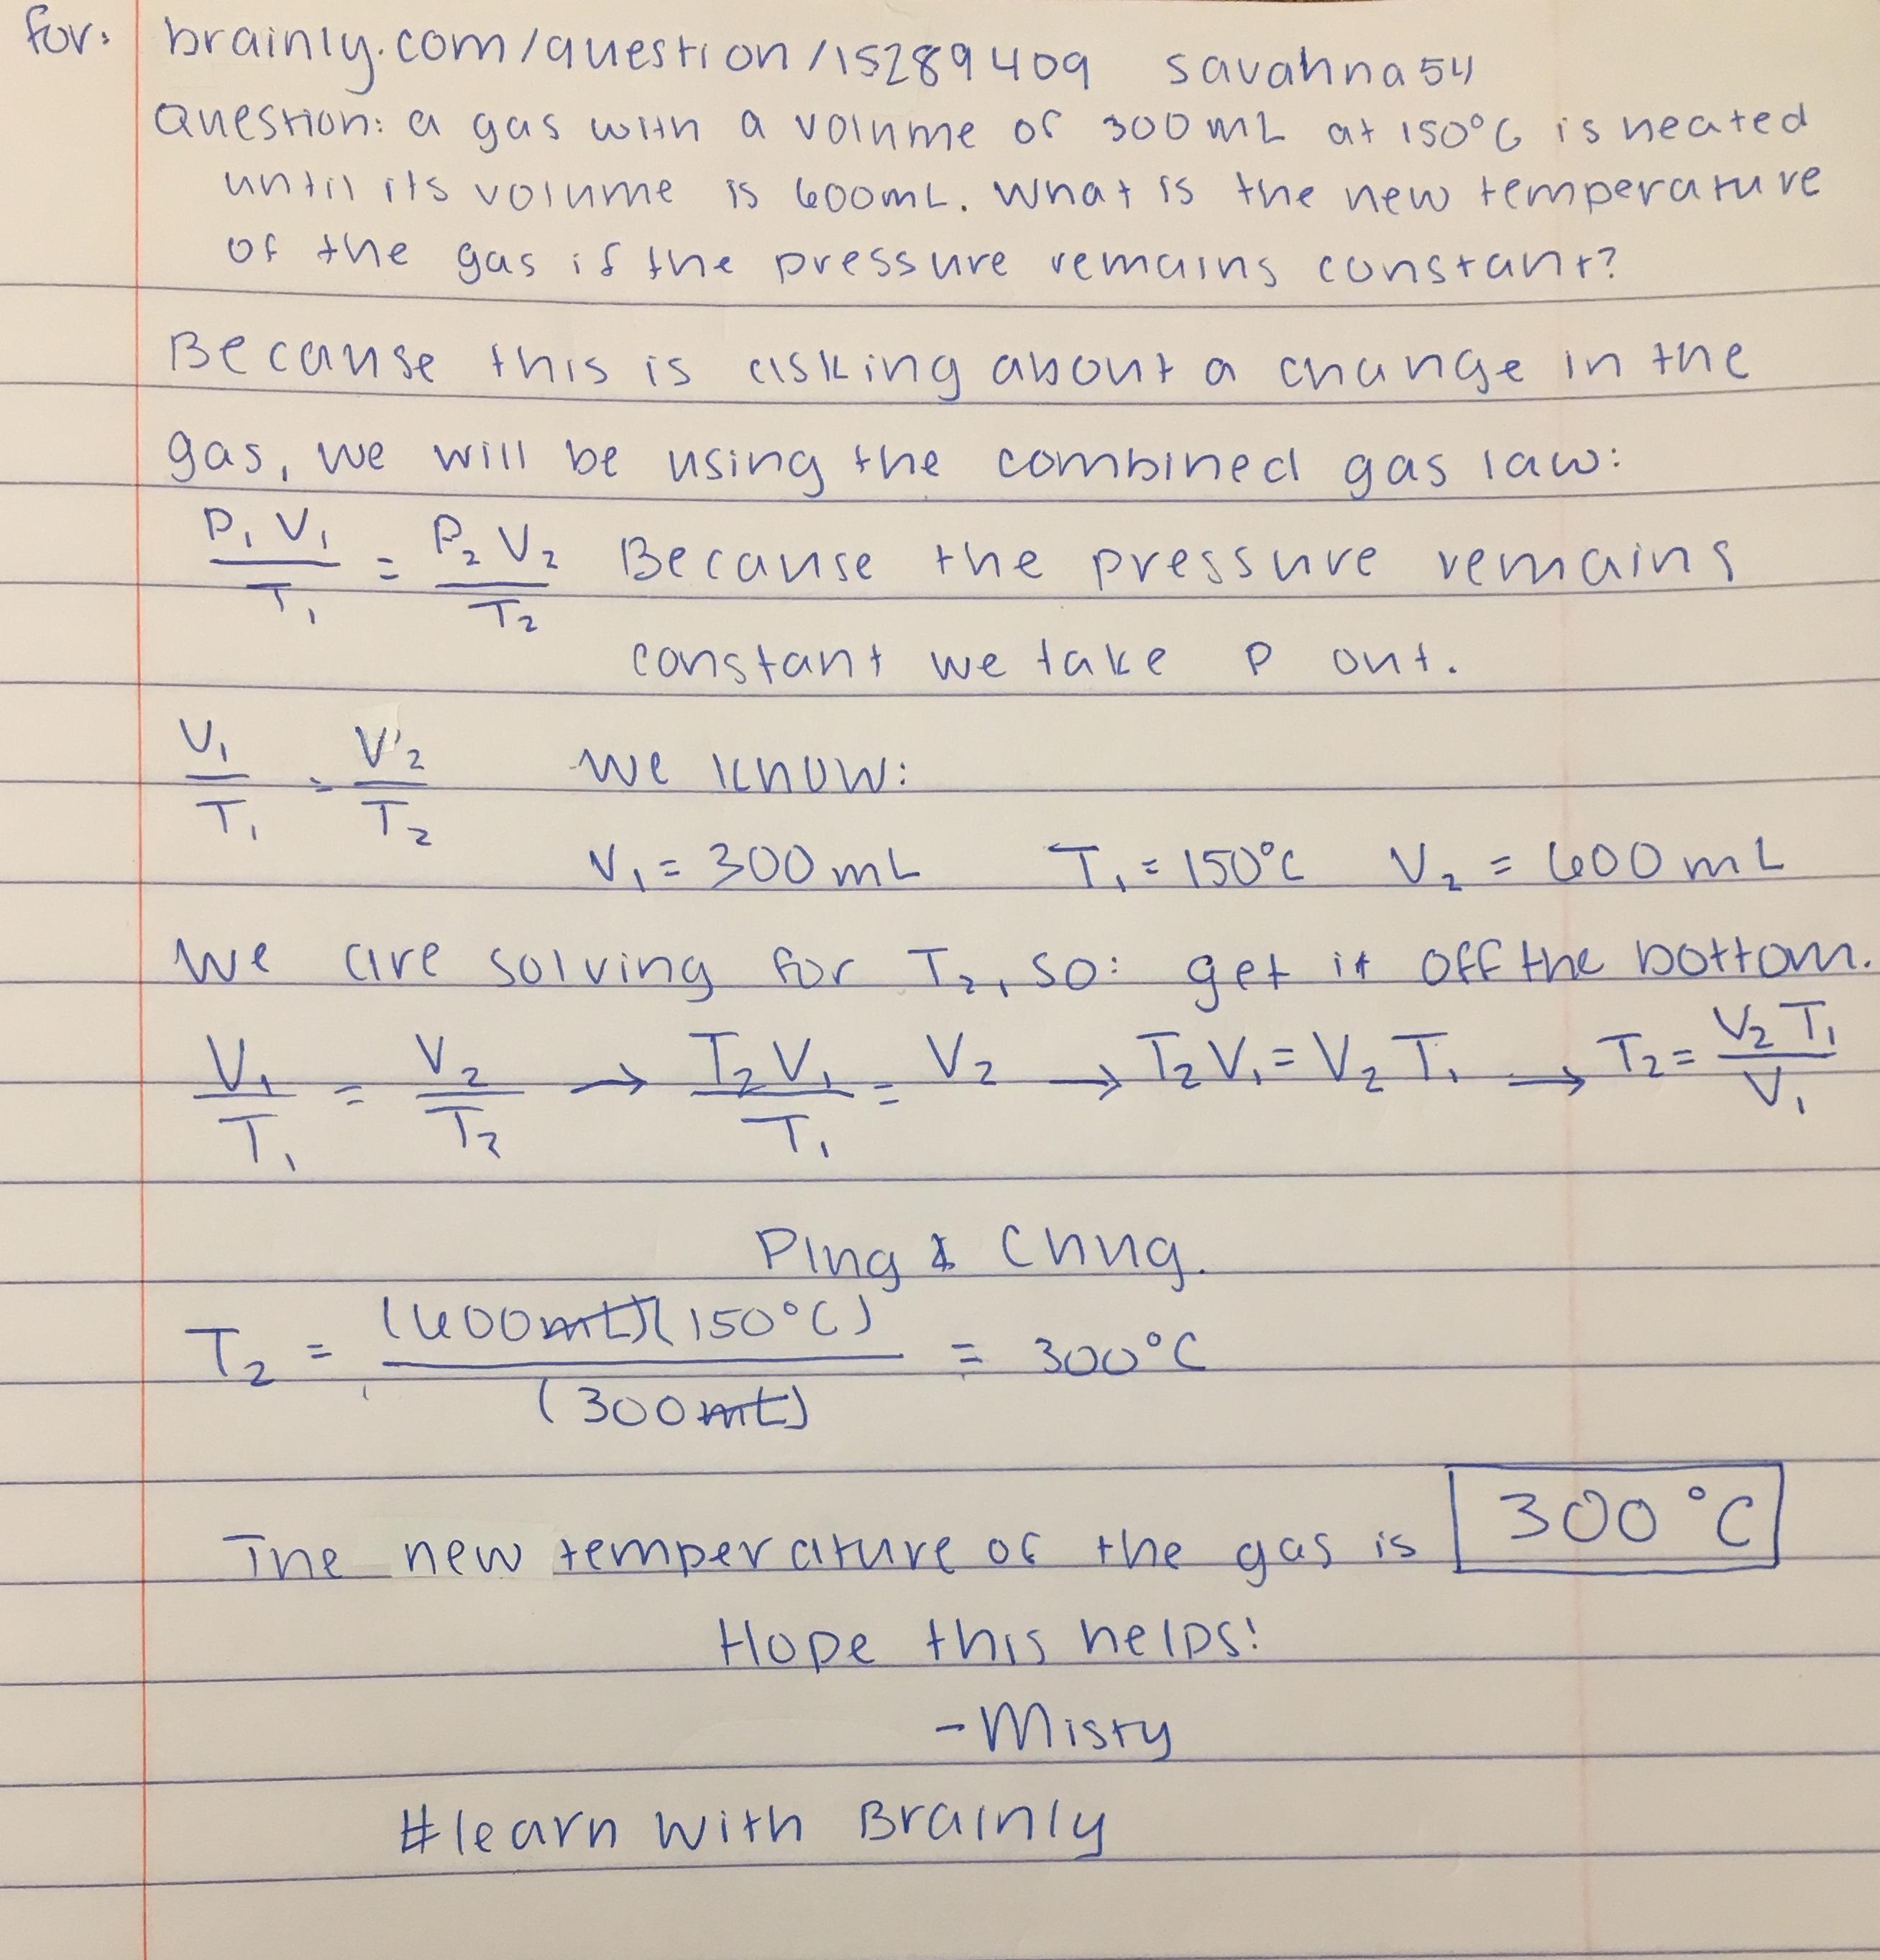 for: brainly.com/question/15289409 savahna54
Question: a gas with a volume of 300mL at 150°C is heated
until its volume is 600mL. What is the new temperature
of the gas if the pressure remains constant?
Because this is asking about a change in the
gas, we will be using the combined gas law:
P₁V₁/T₁ = P₂V₂/T₂ Because the pressure remains
constant we take P out.
V₁/T₁ = V₂/T₂ We know:
V₁ = 300mL T₁ = 150°C V₂ = 600mL
We are solving for T₂, so: get it off the bottom.
V₁/T₁ = V₂/T₂ → T₂V₁/T₁ = V₂ → T₂V₁ = V₂T₁ → T₂ = V₂T₁/V₁
Plug & Chug.
T₂ = (600mL)(150°C)/(300mL) = 300°C
The new temperature of the gas is 300°C
Hope this helps!
-Misty
#learn with Brainly